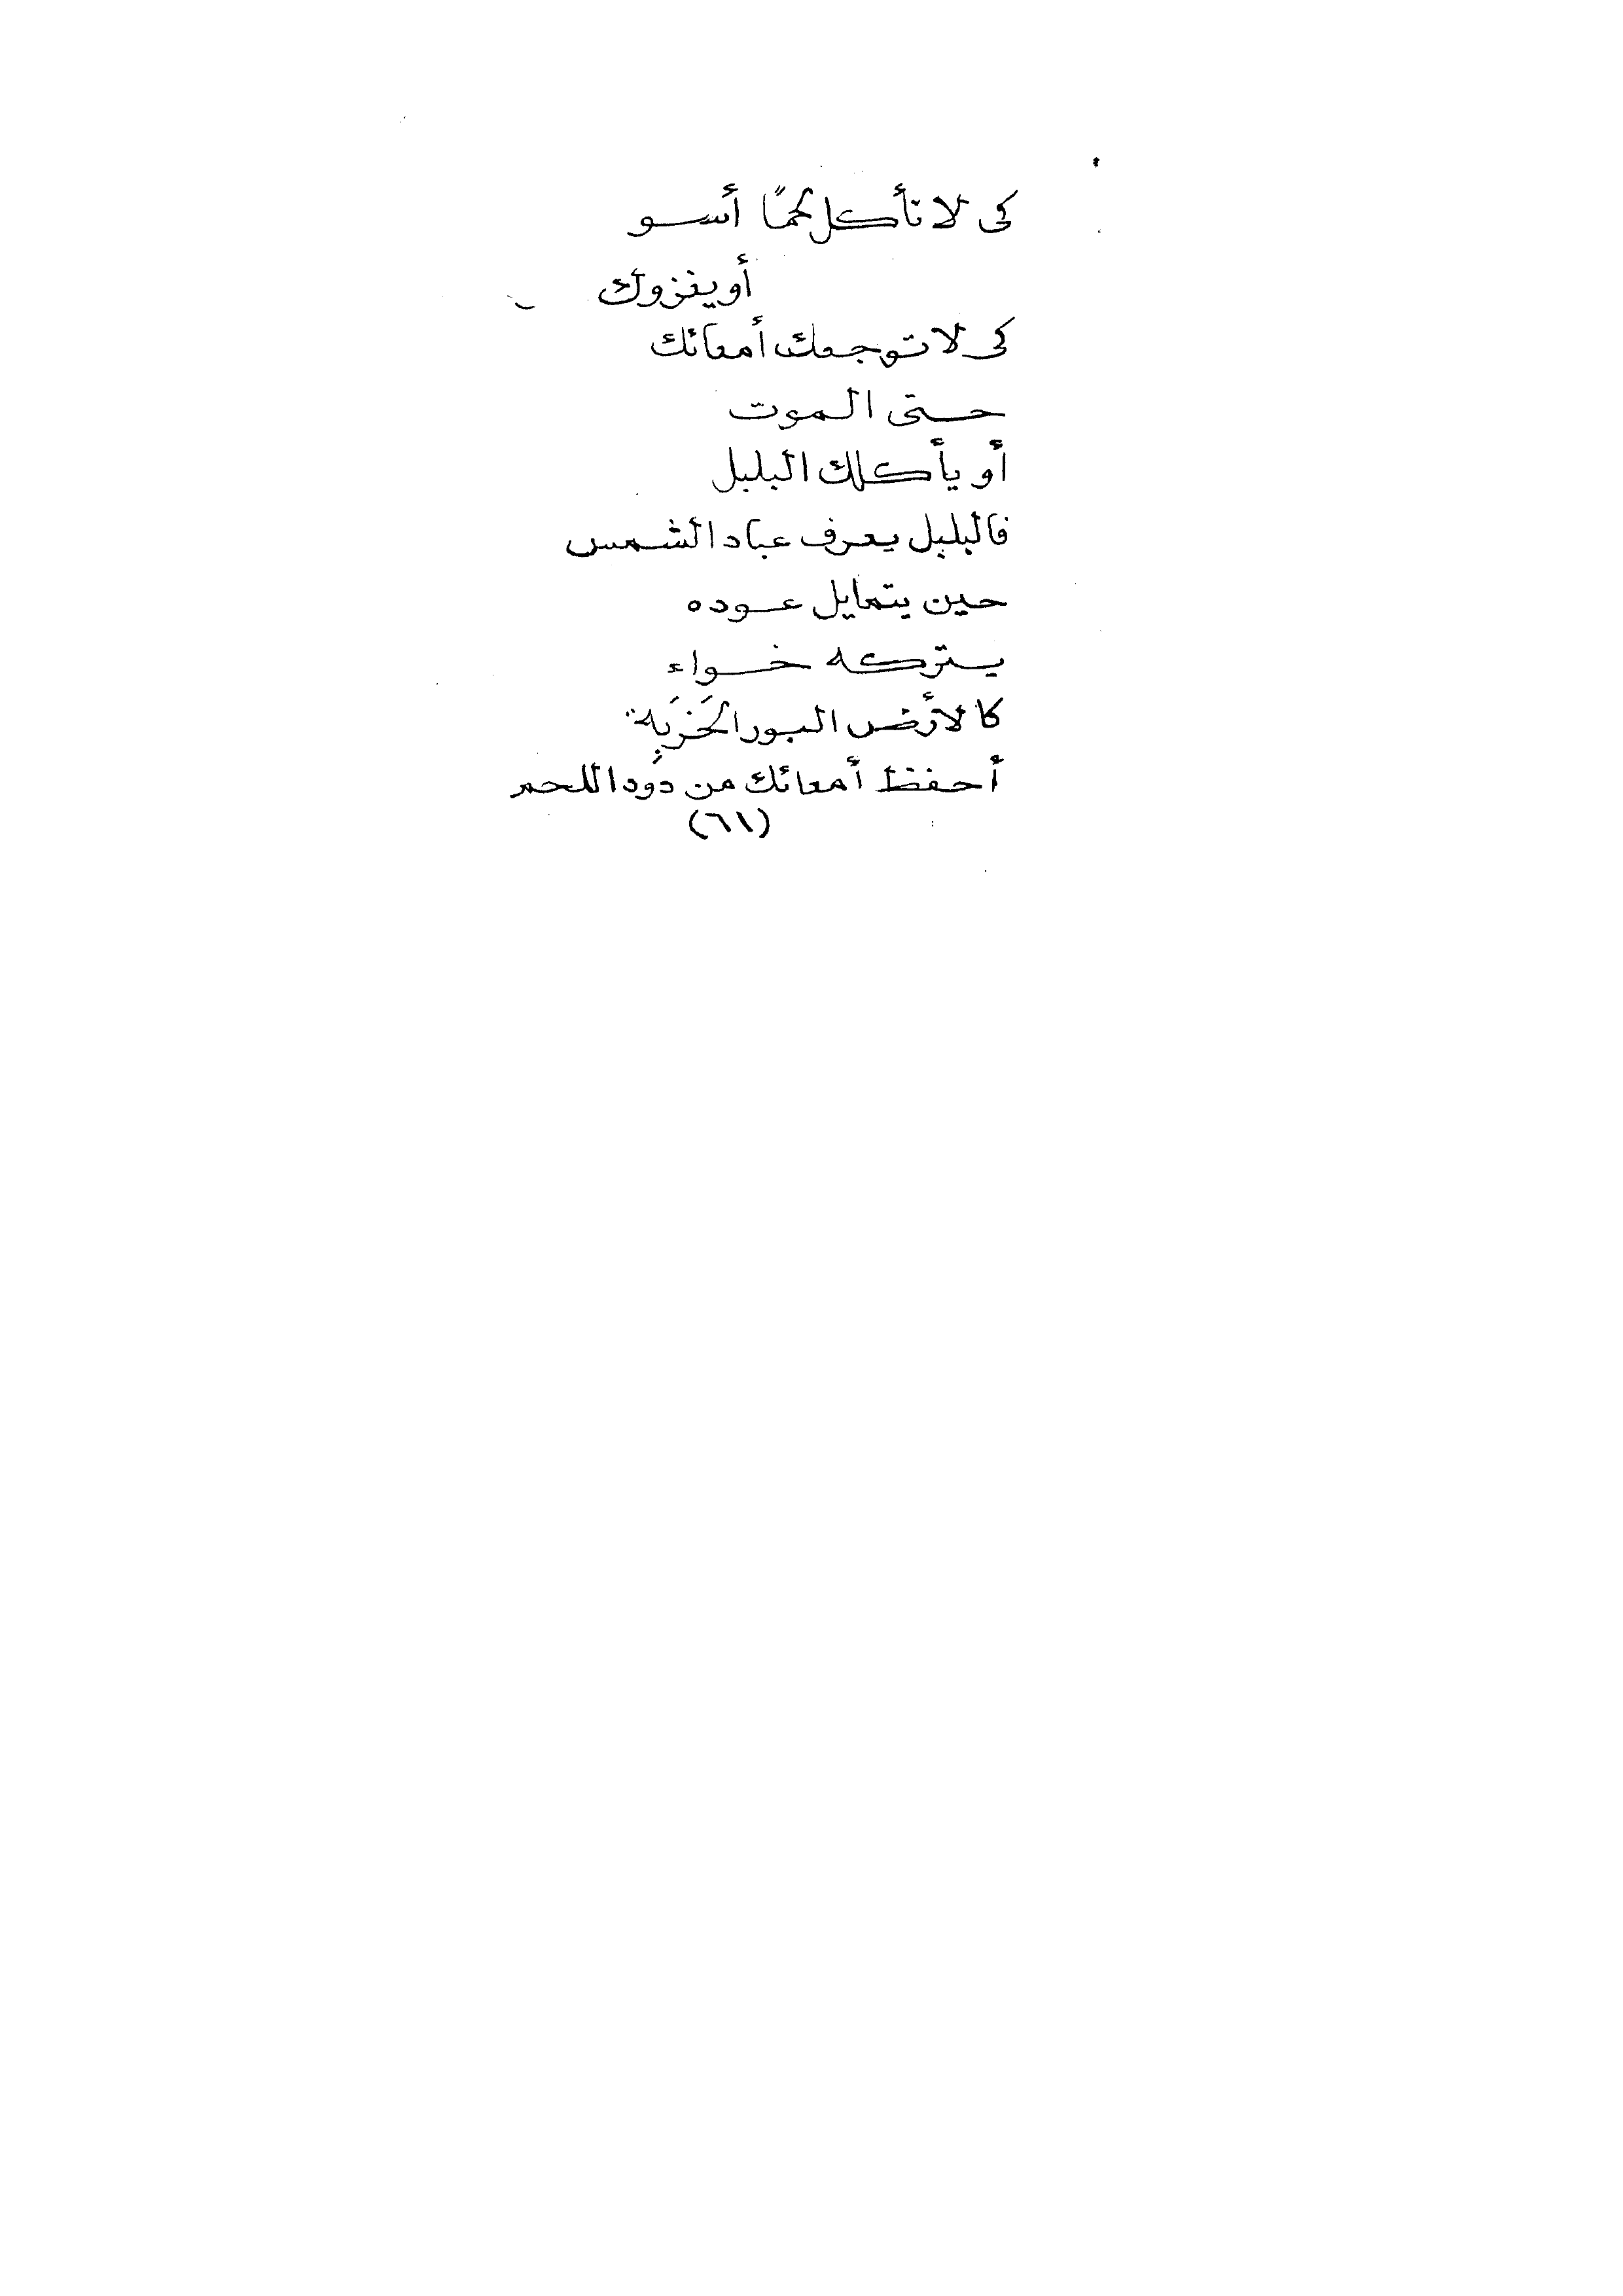 كى لا تأكل لحمًا أسو
أو يغزوك
كى لا توجعك أمعائك
حتى الموت
أو يأكلك البلبل
فالبلبل يعرف عباد الشمس
حين يتمايل عوده
يتركه خواء
كالأرض البور الخَرِبَة
أحفظ أمعائك من دود اللحم
(٦١)